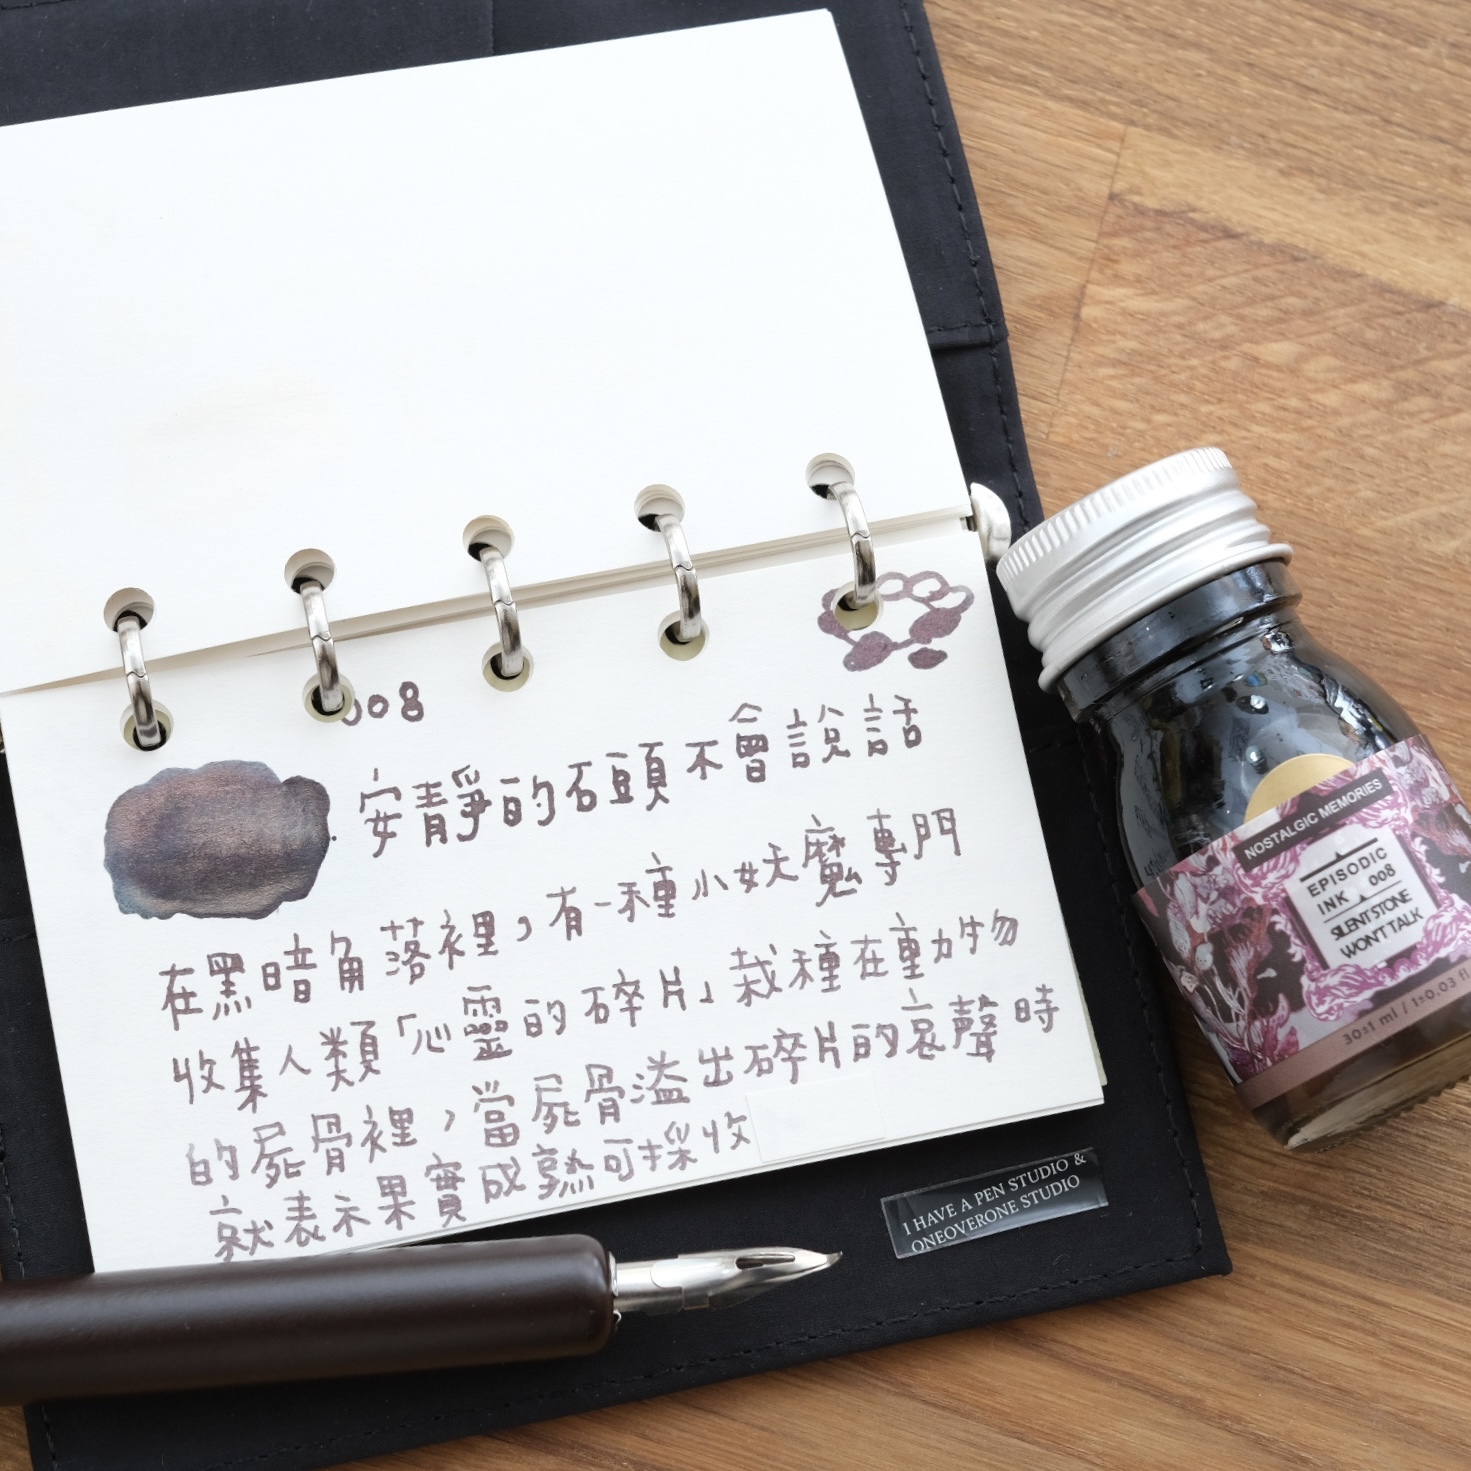 008
安靜的石頭不會說話
在黑暗角落裡，有一種小妖魔專門
收集人類「心靈的碎片」栽種在動物
的屍骨裡，當屍骨溢出碎片的哀聲時
就表示果實成熟可採收
NOSTALGIC MEMORIES
EPISODIC
INK 008
SILENT STONE
WON'T TALK
30±1 ml / 1±0.03 fl
I HAVE A PEN STUDIO &
ONEOVERONE STUDIO